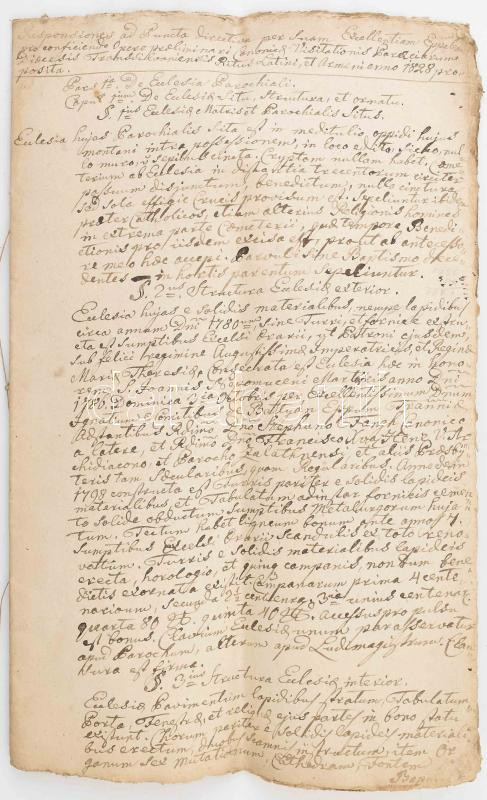 Responsiones ad Puncta directiva per Suam Excellentiam Eppalem
pro conficiendo Opere praeliminari Canonicae Visitationis Parochiarum
Dioecesis Transsilvanensis Ritus Latini, et Armeni anno 1828 pro-
posita.
Pars 1ma De Ecclesia Parochiali.
Caput 1mum De Ecclesiae Situ, Structura, et ornatu.
§ 1mus Ecclesiae Matris et Parochialis Situs.
Ecclesia hujas Parochialis Sita est in meditulio oppidi hujus
montani intra possessionem, in loco edito, sicco, nul-
lo muro, vel sepibus cincta. Cryptam nullam habet, Coeme-
terium ab Ecclesia in distantia trecentorum circiter
passuum disjunctum, benedictum, nullo cinctum,
sed sola effigie Crucis provisum est. Sepeliuntur ibidem
praeter Catholicos, etiam alterius Religionis homines
in extrema parte Coemeterii, quae tempore Benedi-
ctionis pro iisdem excisa est, prout ab antecesso-
re meo hoc accepi. Parvuli sine Baptismo dece-
dentes in hortis parentum Sepeliuntur.
§. 2dus Structura Ecclesiae exterior.
Ecclesia hujas e solidis materialibus, nempe lapidibus
circa annum Dni 1780um, sine Turri, et fornice exstru-
cta est Sumptibus Excelsi Aerarii, vel Patroni ejusdem,
sub felici regimine Augustissimae Imperatricis, et Reginae
Mariae Theresiae. Consecrata est Ecclesia haec in hono-
rem S. Joannis Nepomuceni Martyris anno Dni
1786. Dominica 3ia Octobris per Excellentissimum Dnum
Ignatium e Comitibus de Batthyan Eppum Tranniae
Adstantibus Rdimo Dno Stephano Fanch Canonico
a latere, et Rdimo Dno Francisco
chidiacono et Parocho Zalathnensi, et aliis Presby-
teris tam Saecularibus, quam Regularibus. Anno dein
1798 constructa est Turris pariter e solidis lapideis
materialibus, et Tabulatum ad instar fornicis cemen-
to solide obductum Sumptibus Metalurgorum huja-
tum. Tectum habet ligneum bonum ante annos 4.
Sumptibus Excelsi Aerarii Scandulis ex toto reno-
vatum. Turris e solidis materialibus lapideis
erecta, horologio, et quinque campanis, nondum bene-
dictis exornata existit. Campanarum prima 4 cente-
nariorum, Secunda 2 centenar. 3tia unius centenar.
quarta 80 quinta 40 Accessus pro pulsu
est bonus. Clavium Ecclesiae unum par asservatur
apud Parochum, alterum apud Ludimagistrum. Clau-
sura est firma.
§ 3ius Structura Ecclesiae interior.
Ecclesiae Pavimentum lapidibus stratum, Tabulatum
Porta, Fenestrae, et reliquae ejus partes in bono statu
existunt. Chorum pariter e Solidis lapideis materiali-
bus erectum, duobus Scamnis instructum, item Or-
ganum sex mutationum, Cathedram, Fontem
Bap